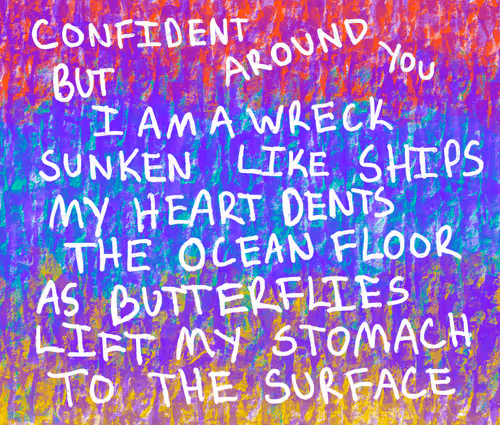 CONFIDENT
BUT AROUND YOU
I AM A WRECK
SUNKEN LIKE SHIPS
MY HEART DENTS
THE OCEAN FLOOR
AS BUTTERFLIES
LIFT MY STOMACH
TO THE SURFACE